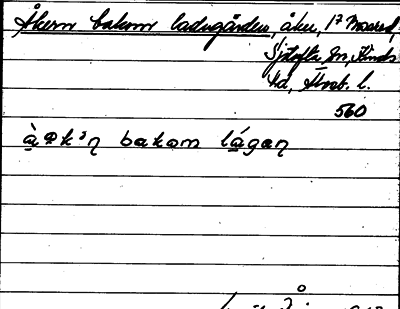 Åkern bakom ladugården, åker, 17 Mossred,
Sjötofta sn, Kinds
hd, Älvsb. l.
560
bakom lágan